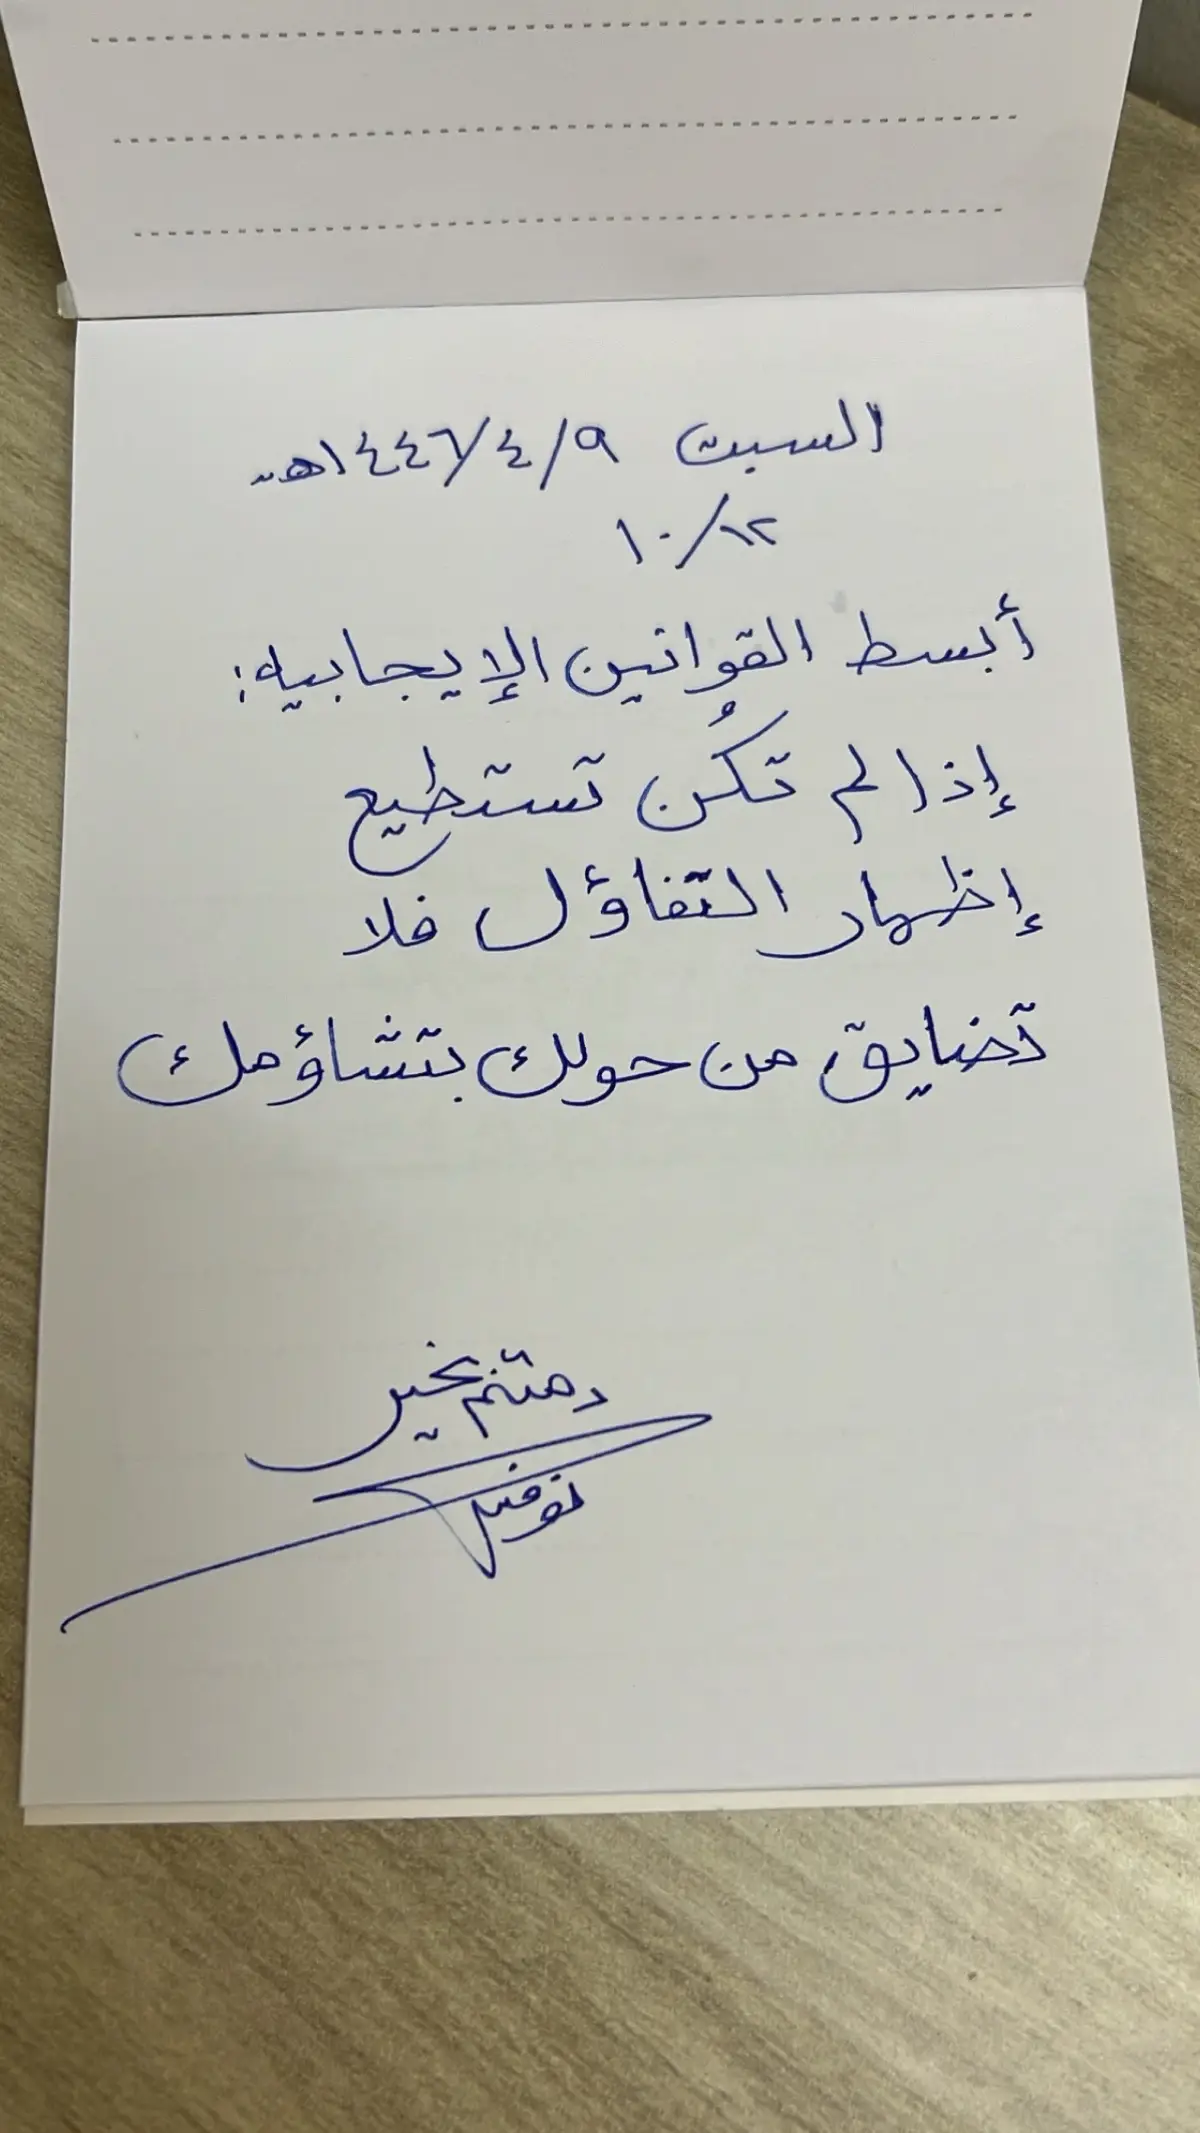 السبت ٩/٤/١٤٤٦هـ
١٠/١٢
أبسط القوانين الإيجابيه:
إذا لم تكُن تستطيع
إظهار التفاؤل فلا
تضايق من حولك بتشاؤمك
دمتم بخير
نوفل